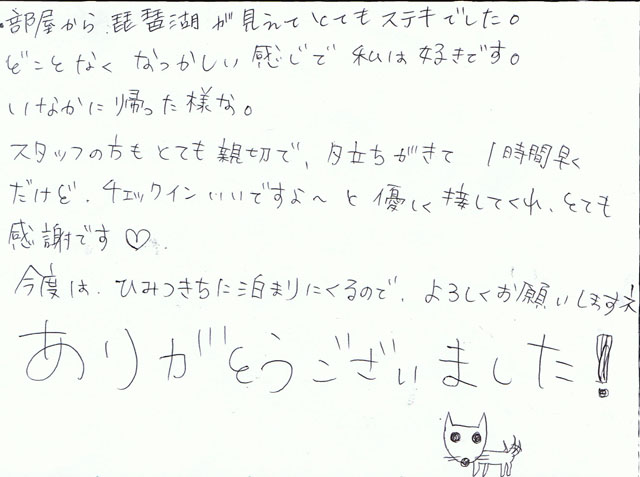 ・部屋から琵琶湖が見えてとてもステキでした。
どことなくなつかしい感じで私は好きです。
いなかに帰った様な。
スタッフの方もとても親切で、夕立ちがきて1時間早く
だけど、チェックインいいですよ〜と優しく接してくれ、とても
感謝です♡
今度は、ひみつきちに泊まりにくるので、よろしくお願いしますネ
ありがとうございました!